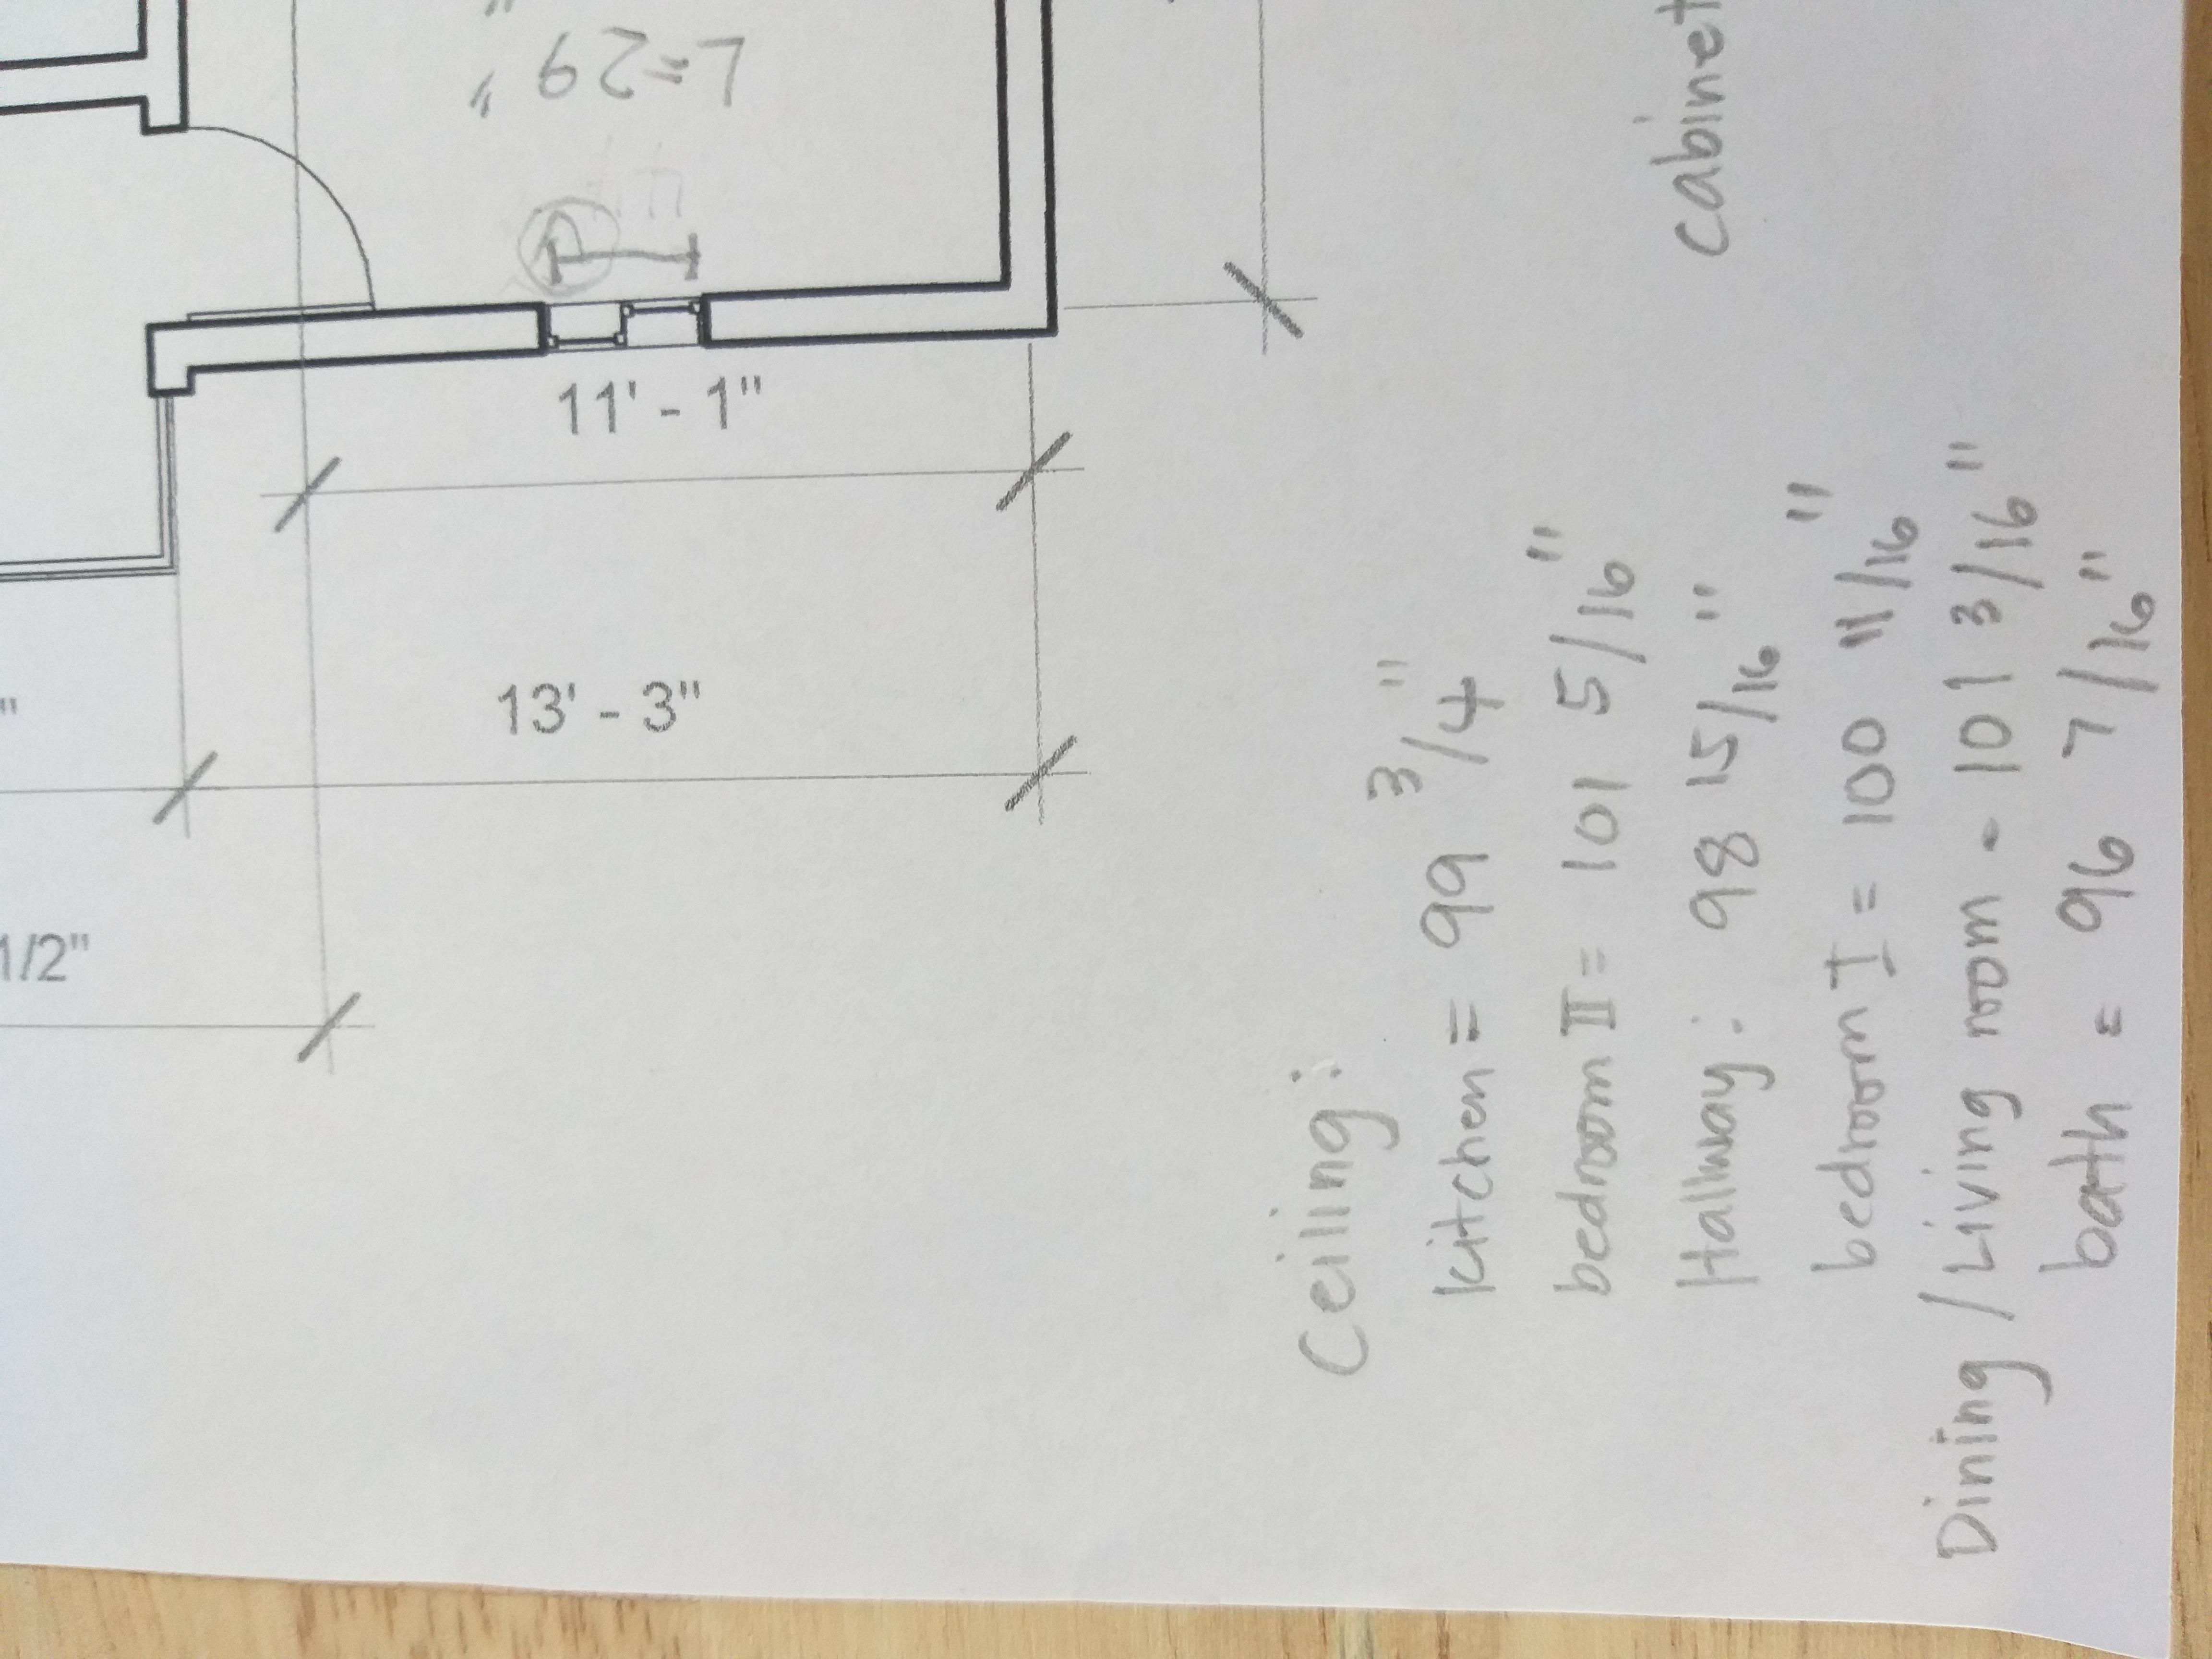 1/2"
"
13' - 3"
11' - 1"
L=29"
Ceiling:
kitchen = 99 3/4"
bedroom II = 101 5/16"
Hallway: 98 15/16"
bedroom I = 100 11/16"
Dining / Living room - 101 3/16"
bath = 96 7/16"
cabinet